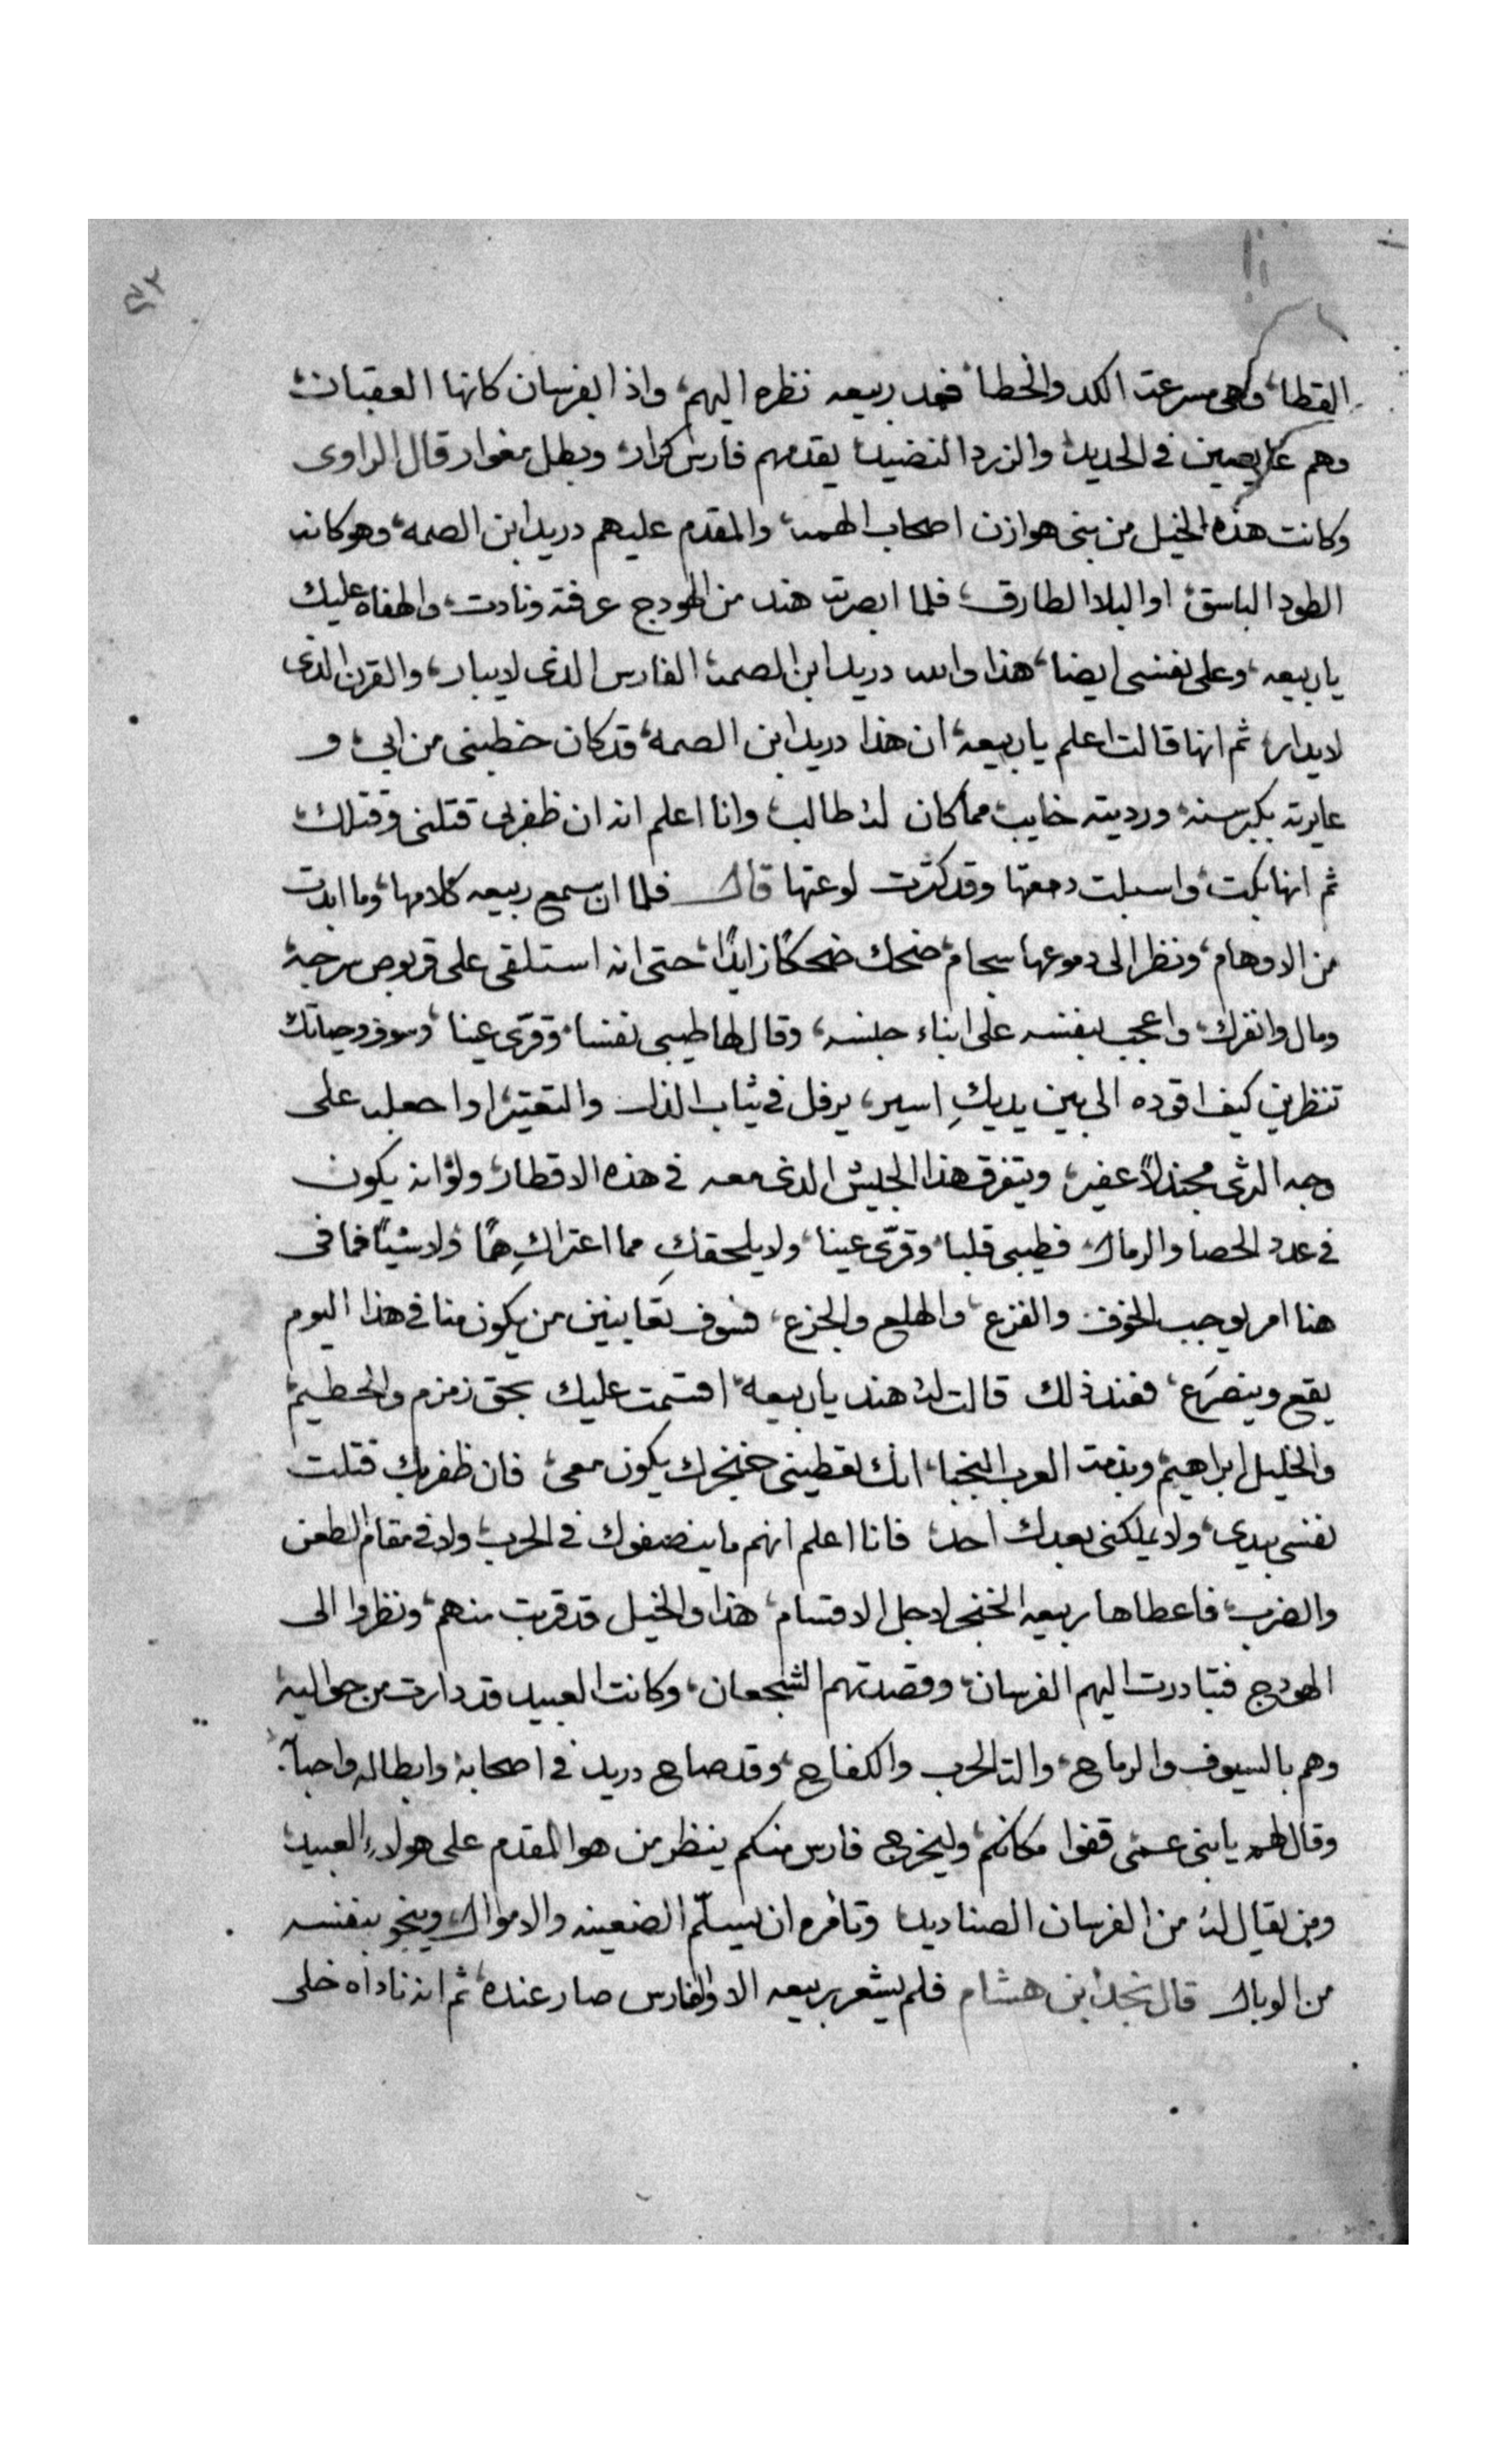 ٤٣
القطا، وهي مسرعت الكد والخطا، فمد ربيعه نظره اليهم، واذا بفرسان كانها العقبان،
وهم غايصين في الحديد، والزرد النضيد، يقدمهم فارس كرار، وبطل مغوار قال الراوى
وكانت هذه الخيل من بنى هوازن اصحاب الهمه، والمقدم عليهم دريد ابن الصمه، وهو كانه
الطود الباسق، او البلا الطارق، فلما ابصرته هند من الهودج عرفته ونادت، والهفاه عليك
يا ربيعه، وعلى نفسى ايضا، هذا والله دريد ابن الصمه، الفارس الذى لا يبار، والقرن الذى
لا يدار، ثم انها قالت اعلم يا ربيعه، ان هذا دريد ابن الصمه، قد كان خطبنى من ابى، و
عايرته بكبر سنه، ورديته خايب، مما كان له طالب، وانا اعلم انه ان ظفر بى قتلنى وقتلك،
ثم انها بكت، واسبلت دمعتها وقد كثرت لوعتها قال فلما ان سمع ربيعه كلامها، وما ابدت
من الاوهام، ونظر الى دموعها سجام، ضحك ضحكًا زايدًا، حتى انه استلقى على قربوص سرجه،
ومال وانفرك، واعجب بنفسه على ابناء جنسه، وقال لها طيبى نفسا، وقرّى عينا، وسوف وحياتك
تنظرين كيف اقوده الى بين يديكِ اسير، يرفل فى ثياب الذل والتقتير، او اجعله على
وجه الثرى مجندلاً عفير، ويتفرق هذا الجيش الذى معه فى هذه الاقطار، ولو انه يكون
فى عدد الحصا والرمال، فطيبى قلبا، وقرّى عينا، ولا يلحقكِ مما اعتراكِ همًا، ولا شيئًا فما فى
هنا امر يوجب الخوف والفزع، والهلع والجزع، فسوف تعاينين من يكون منا فى هذا اليوم
يقع وينصرَع، فعند ذلك قالت له هند يا ربيعه، اقسمت عليك بحق زمزم والحطيم،
والخليل ابراهيم، وبذمة العرب النخبا، انك تعطينى خنجرك يكون معى، فان ظفر بك قتلت
نفسى بيدى، ولا يملكنى بعدك احد، فانا اعلم انهم ما ينصفوك فى الحرب، ولا فى مقام الطعن
والضرب، فاعطاها ربيعه الخنجر لاجل الاقسام، هذا والخيل قد قربت منهم، ونظروا الى
الهودج فتبادرت اليهم الفرسان، وقصدتهم الشجعان، وكانت العبيد قد دارت من حواليه،
وهم بالسيوف والرماح، والة الحرب والكفاح، وقد صاح دريد فى اصحابه، وابطاله واحبآ،
وقال لهم يا بنى عمى قفوا مكانكم، وليخرج فارس منكم ينظر من هو المقدم على هولاءِ العبيد،
ومن يقال له من الفرسان الصناديد، وتأمره ان يسلّم الضعينه والاموال، وينجو بنفسه
من الوبال قال نجد ابن هشام فلم يشعر ربيعه الا والفارس صار عنده، ثم انه ناداه خلى